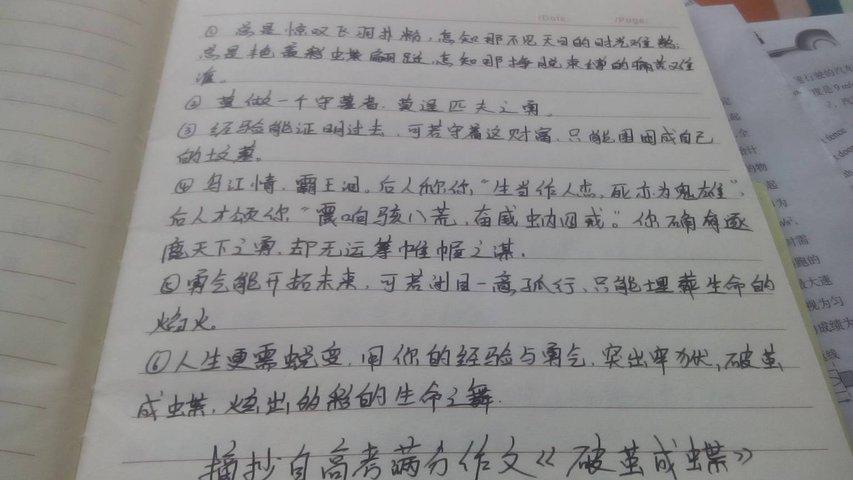 /Date: /Page:
① 总是惊叹飞羽扑粉，怎知那不见天日的时光难熬；
总是艳羡彩虫蝶翩跹，怎知那挣脱束缚的痛苦难
准。
② 莫做一个守墓者，莫逞匹夫之勇。
③ 经验能证明过去，可若守着这财富，只能困囿成自己
的坟墓。
④ 乌江情，霸王泪。后人称你“生当作人杰，死亦为鬼雄”，
后人才颂你“震响骇八荒，奋威蚋四戎”。你确有逐
鹿天下之勇，却无运筹帷幄之谋。
⑤ 勇气能开拓未来，可若一意孤行，只能埋葬生命的
焰火。
⑥ 人生更需蜕变，用你的经验与勇气，突出牢狱，破茧
成蝶，炫出多彩的生命之舞。
摘抄自高考满分作文《破茧成蝶》